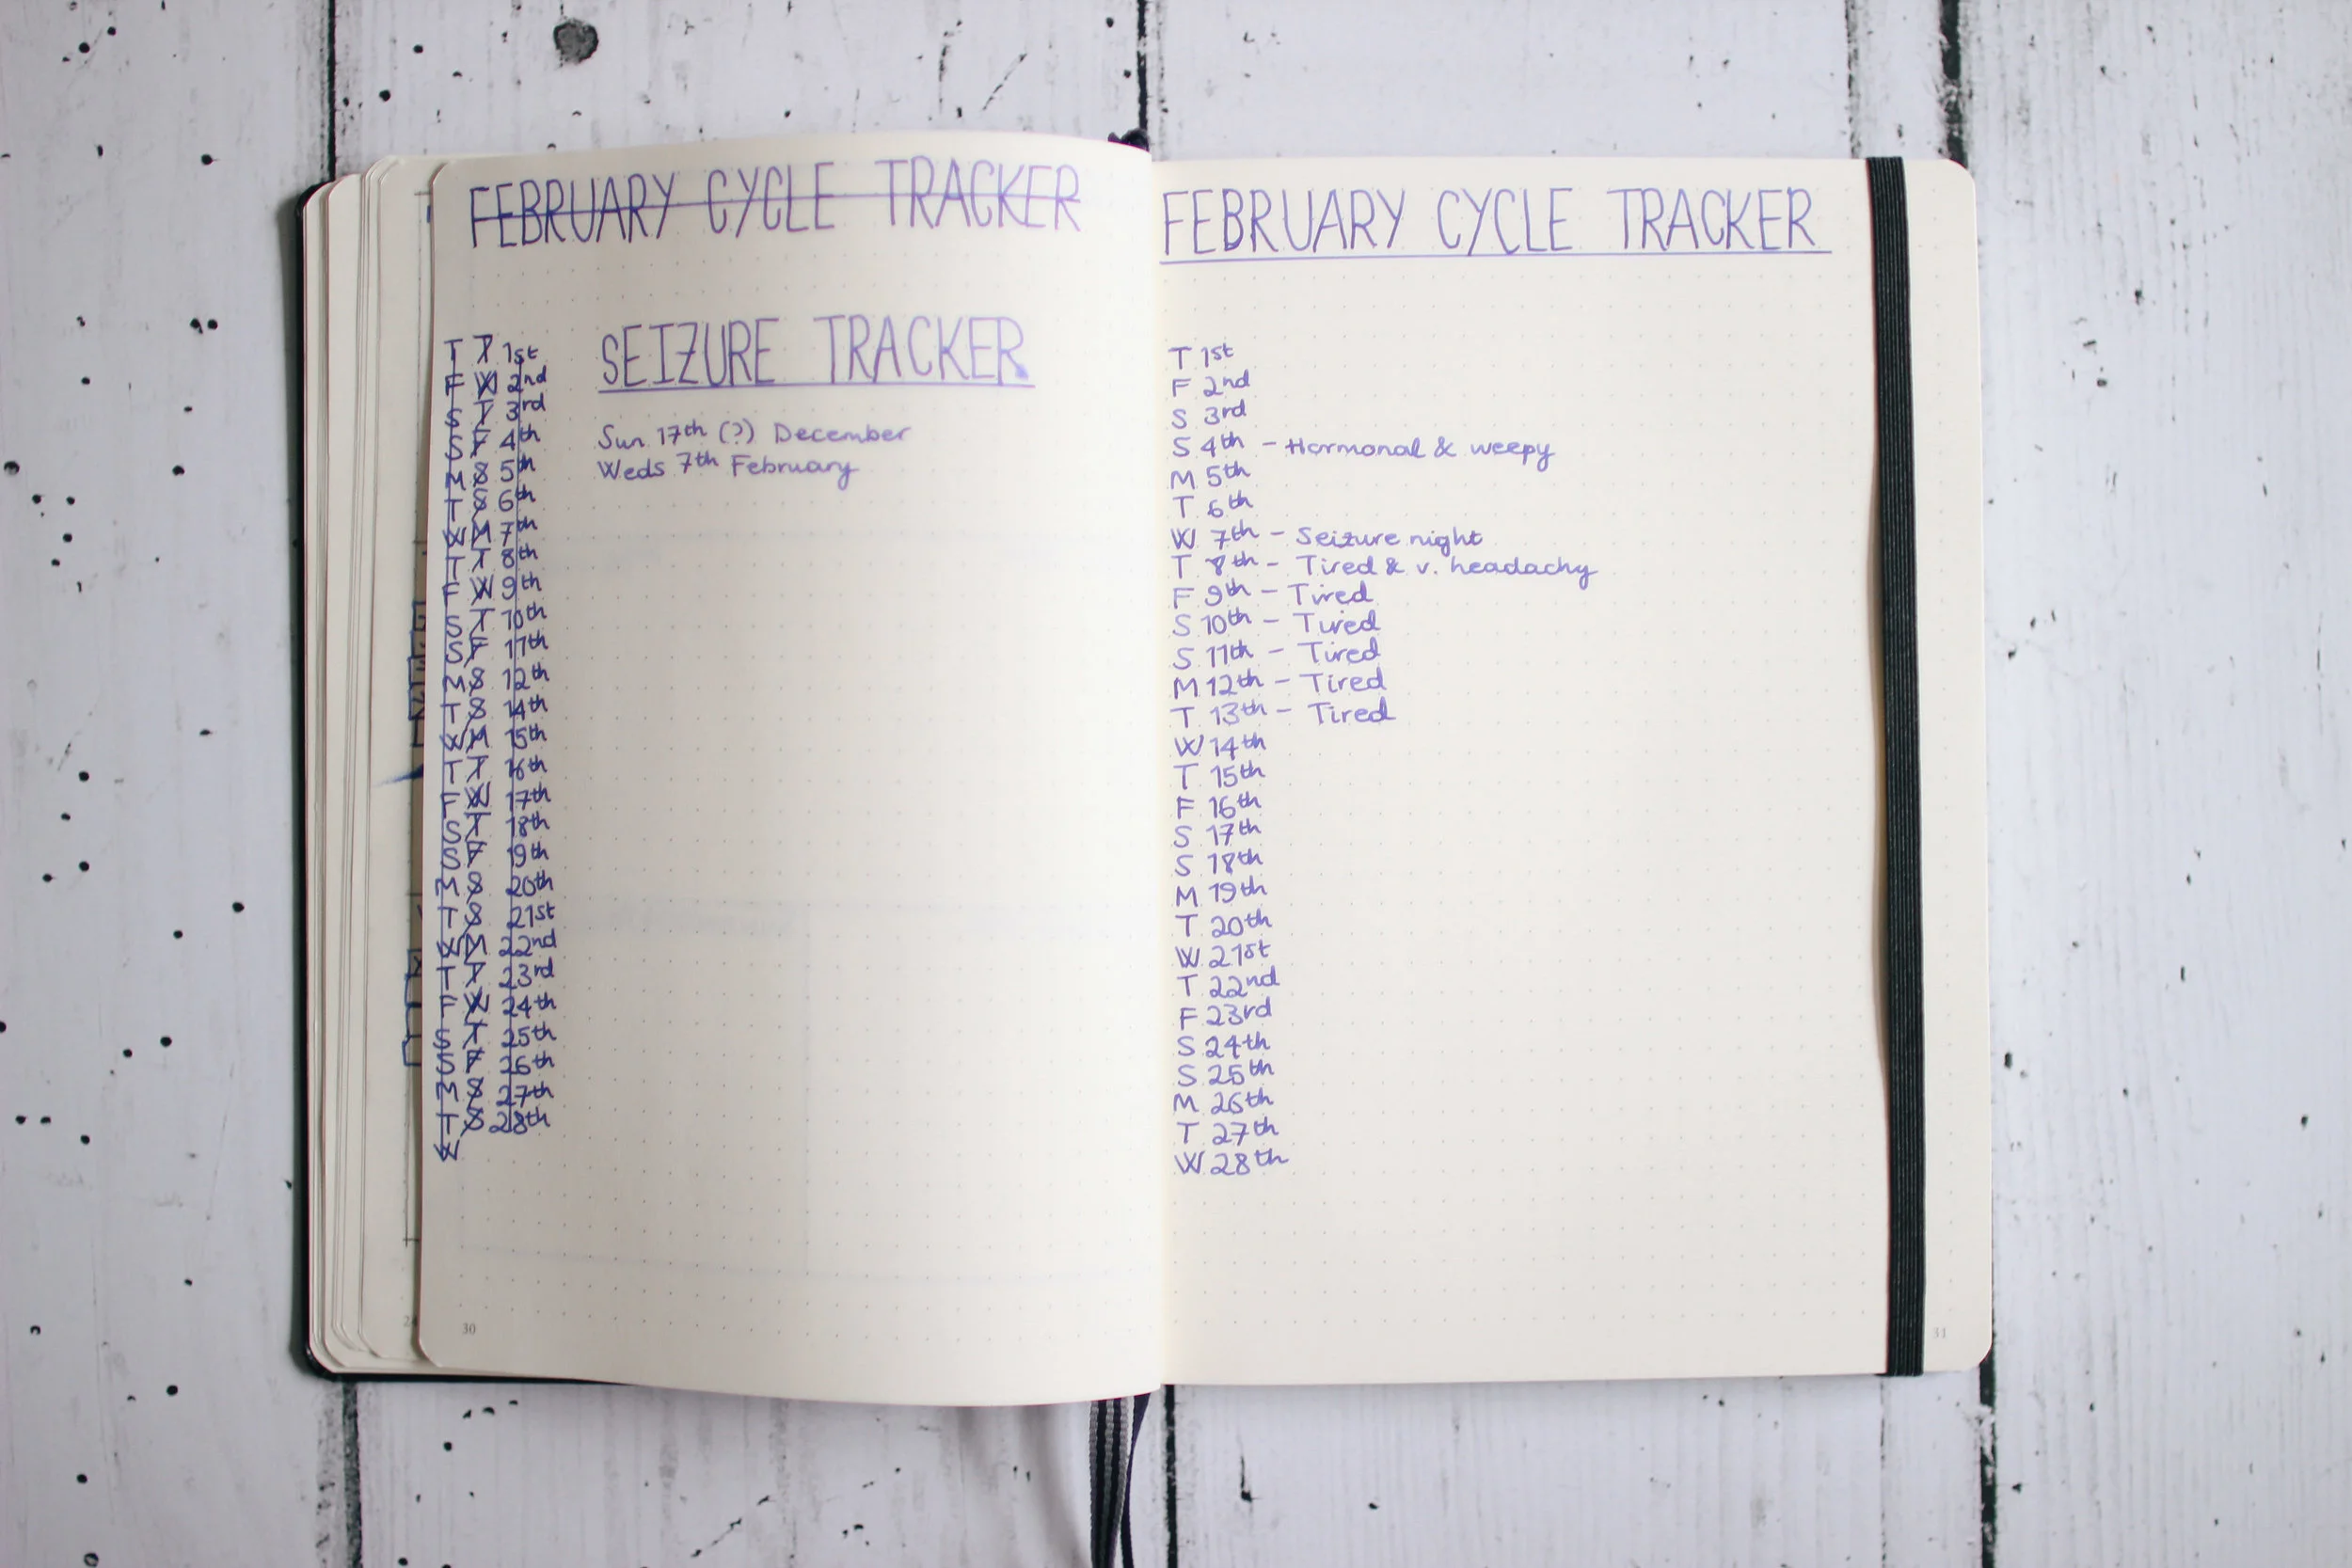 FEBRUARY CYCLE TRACKER
SEIZURE TRACKER
Sun 17th (?) December
Weds 7th February
T T 1st
F W 2nd
S T 3rd
S F 4th
M S 5th
T S 6th
W M 7th
T T 8th
F W 9th
S T 10th
S F 11th
M S 12th
T S 14th
W M 15th
T T 16th
F W 17th
S T 18th
S F 19th
M S 20th
T S 21st
W M 22nd
T T 23rd
F W 24th
S T 25th
S F 26th
M S 27th
T S 28th
W
30
FEBRUARY CYCLE TRACKER
T 1st
F 2nd
S 3rd
S 4th - Hormonal & weepy
M 5th
T 6th
W 7th - Seizure night
T 8th - Tired & v. headachy
F 9th - Tired
S 10th - Tired
S 11th - Tired
M 12th - Tired
T 13th - Tired
W 14th
T 15th
F 16th
S 17th
S 18th
M 19th
T 20th
W 21st
T 22nd
F 23rd
S 24th
S 25th
M 26th
T 27th
W 28th
31